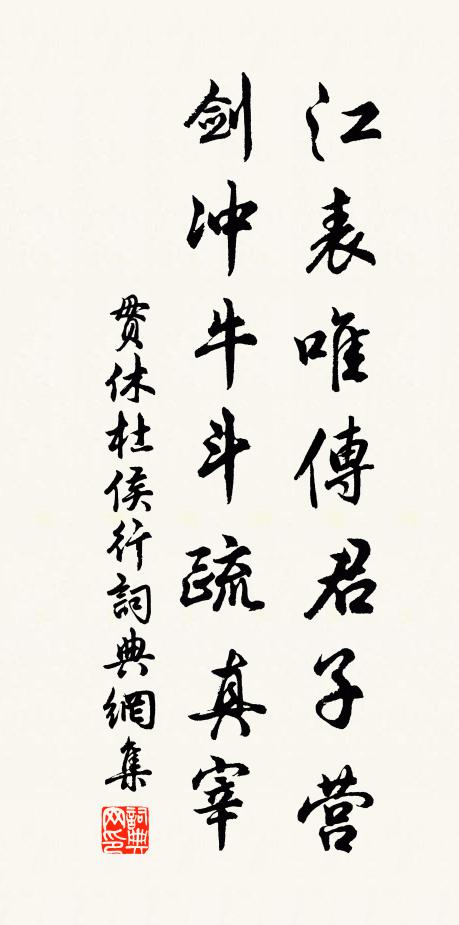 江表唯傳君子营
剑冲牛斗疏真宰
貫休杜侯行詞典網集
詞典网印